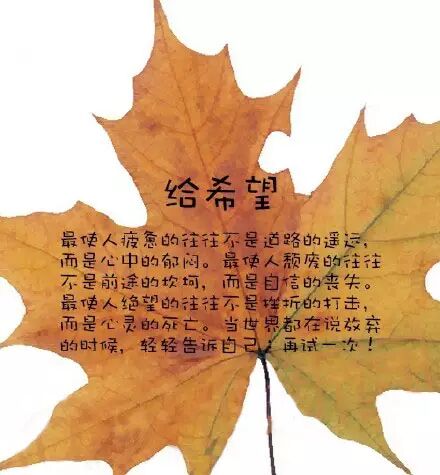 给希望
最使人疲惫的往往不是道路的遥远，
而是心中的郁闷。最使人颓废的往往
不是前途的坎坷，而是自信的丧失。
最使人绝望的往往不是挫折的打击，
而是心灵的死亡。当世界都在说放弃
的时候，轻轻告诉自己：再试一次！